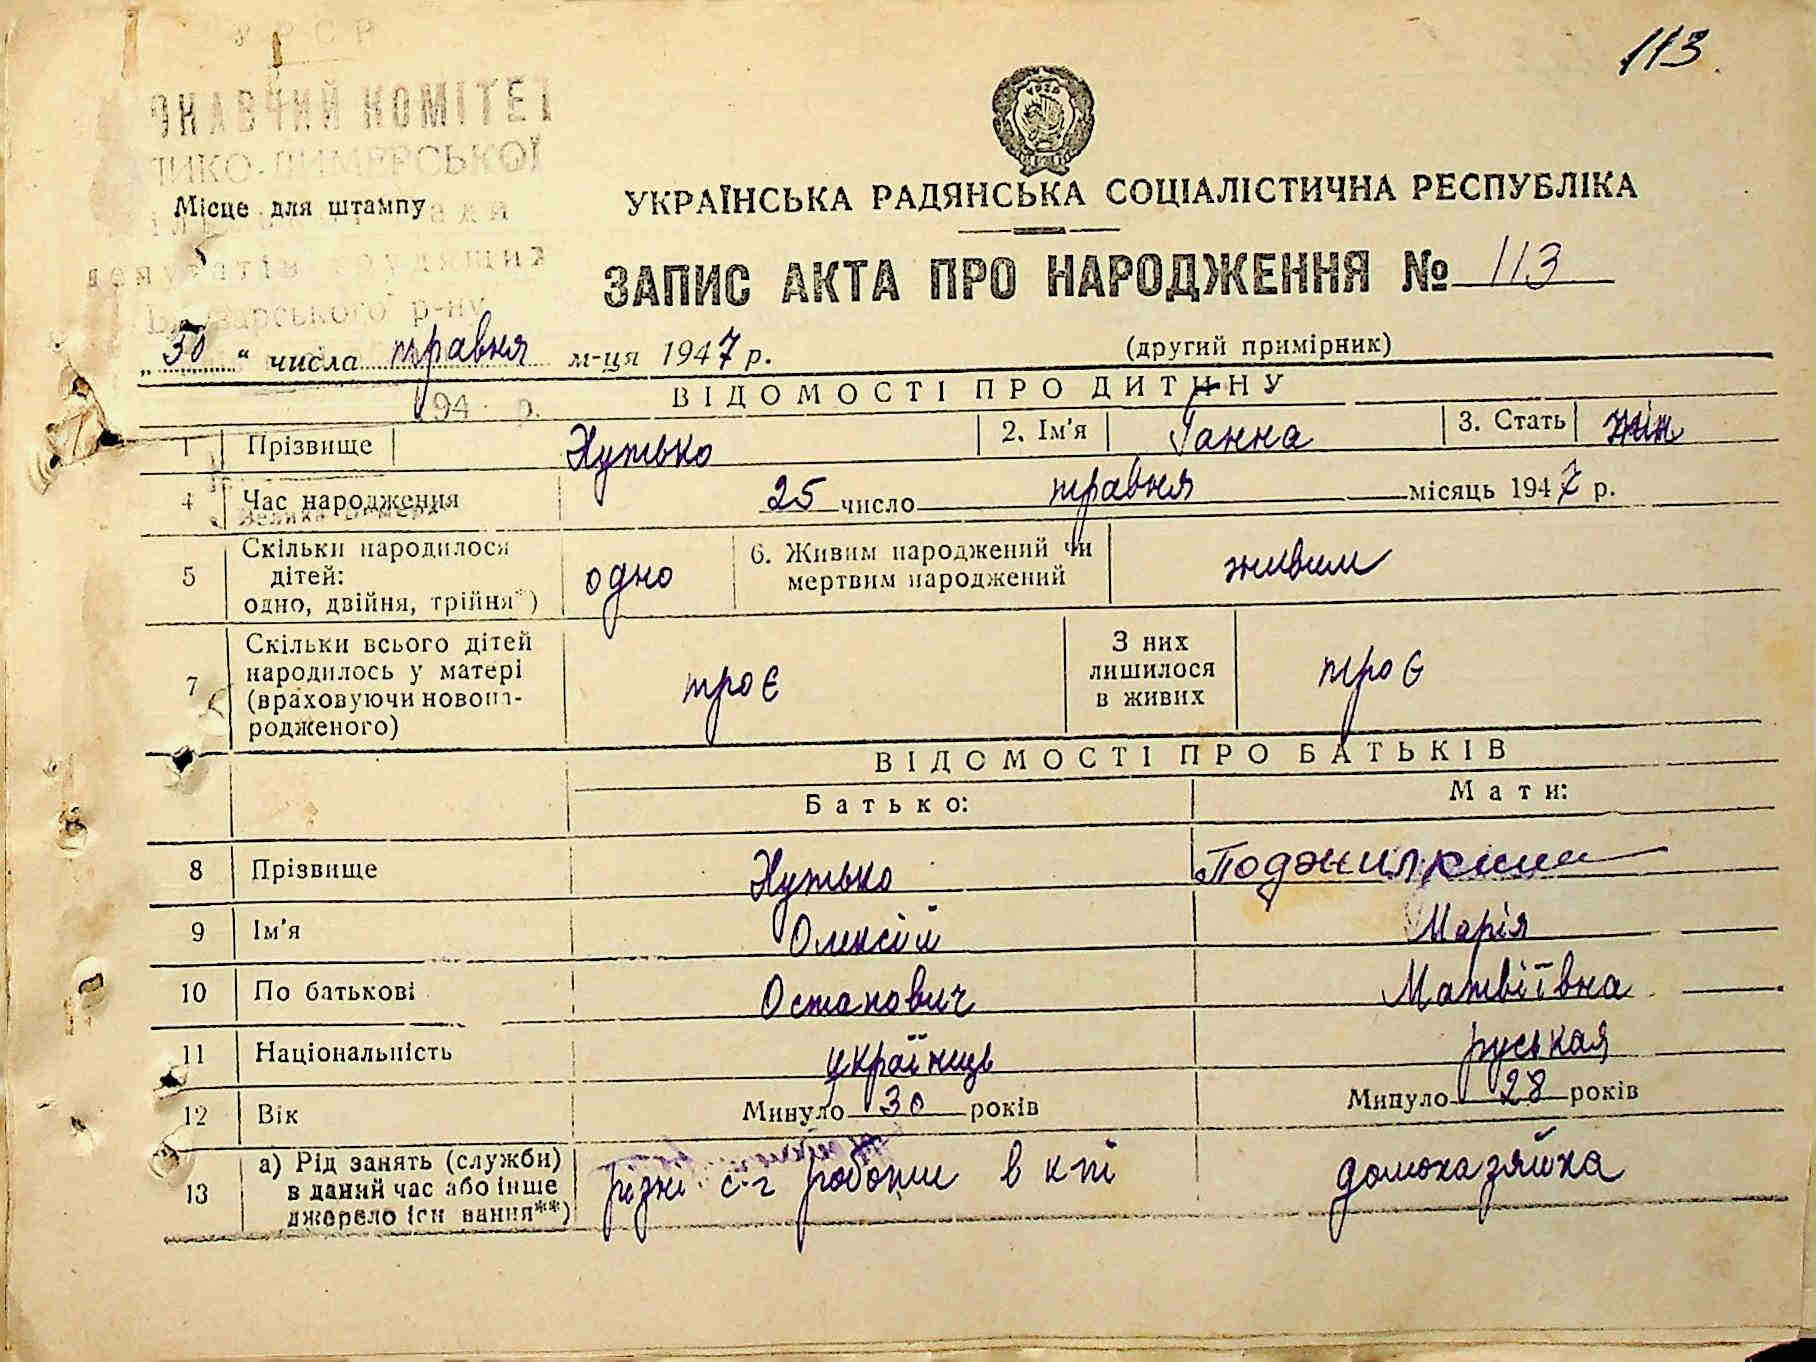 113
У Р С Р
ОНАВЧИЙ КОМІТЕТ
ЛИКО-ДИМЕРСЬКОЇ
Місце для штампу
депутатів трудящих
Броварського р-ну
194 р.
Велика Димерка
УКРАЇНСЬКА РАДЯНСЬКА СОЦІАЛІСТИЧНА РЕСПУБЛІКА
ЗАПИС АКТА ПРО НАРОДЖЕННЯ № 113
„30“ числа травня м-ця 1947 р. (другий примірник)
ВІДОМОСТІ ПРО ДИТИНУ
1 Прізвище Хутько 2. Ім'я Ганна 3. Стать жін
4 Час народження 25 число травня місяць 1947 р.
5 Скільки народилося дітей: одно, двійня, трійня*) одно 6. Живим народжений чи мертвим народжений живим
7 Скільки всього дітей народилось у матері (враховуючи новонародженого) троє З них лишилося в живих троє
ВІДОМОСТІ ПРО БАТЬКІВ
Батько: Мати:
8 Прізвище Хутько
9 Ім'я Олексій Марія
10 По батькові Остапович Матвіївна
11 Національність українець руськая
12 Вік Минуло 30 років Минуло 28 років
13 а) Рід занять (служби) в даний час або інше джерело існування**) різні с-г роботи в к-пі домохазяйка